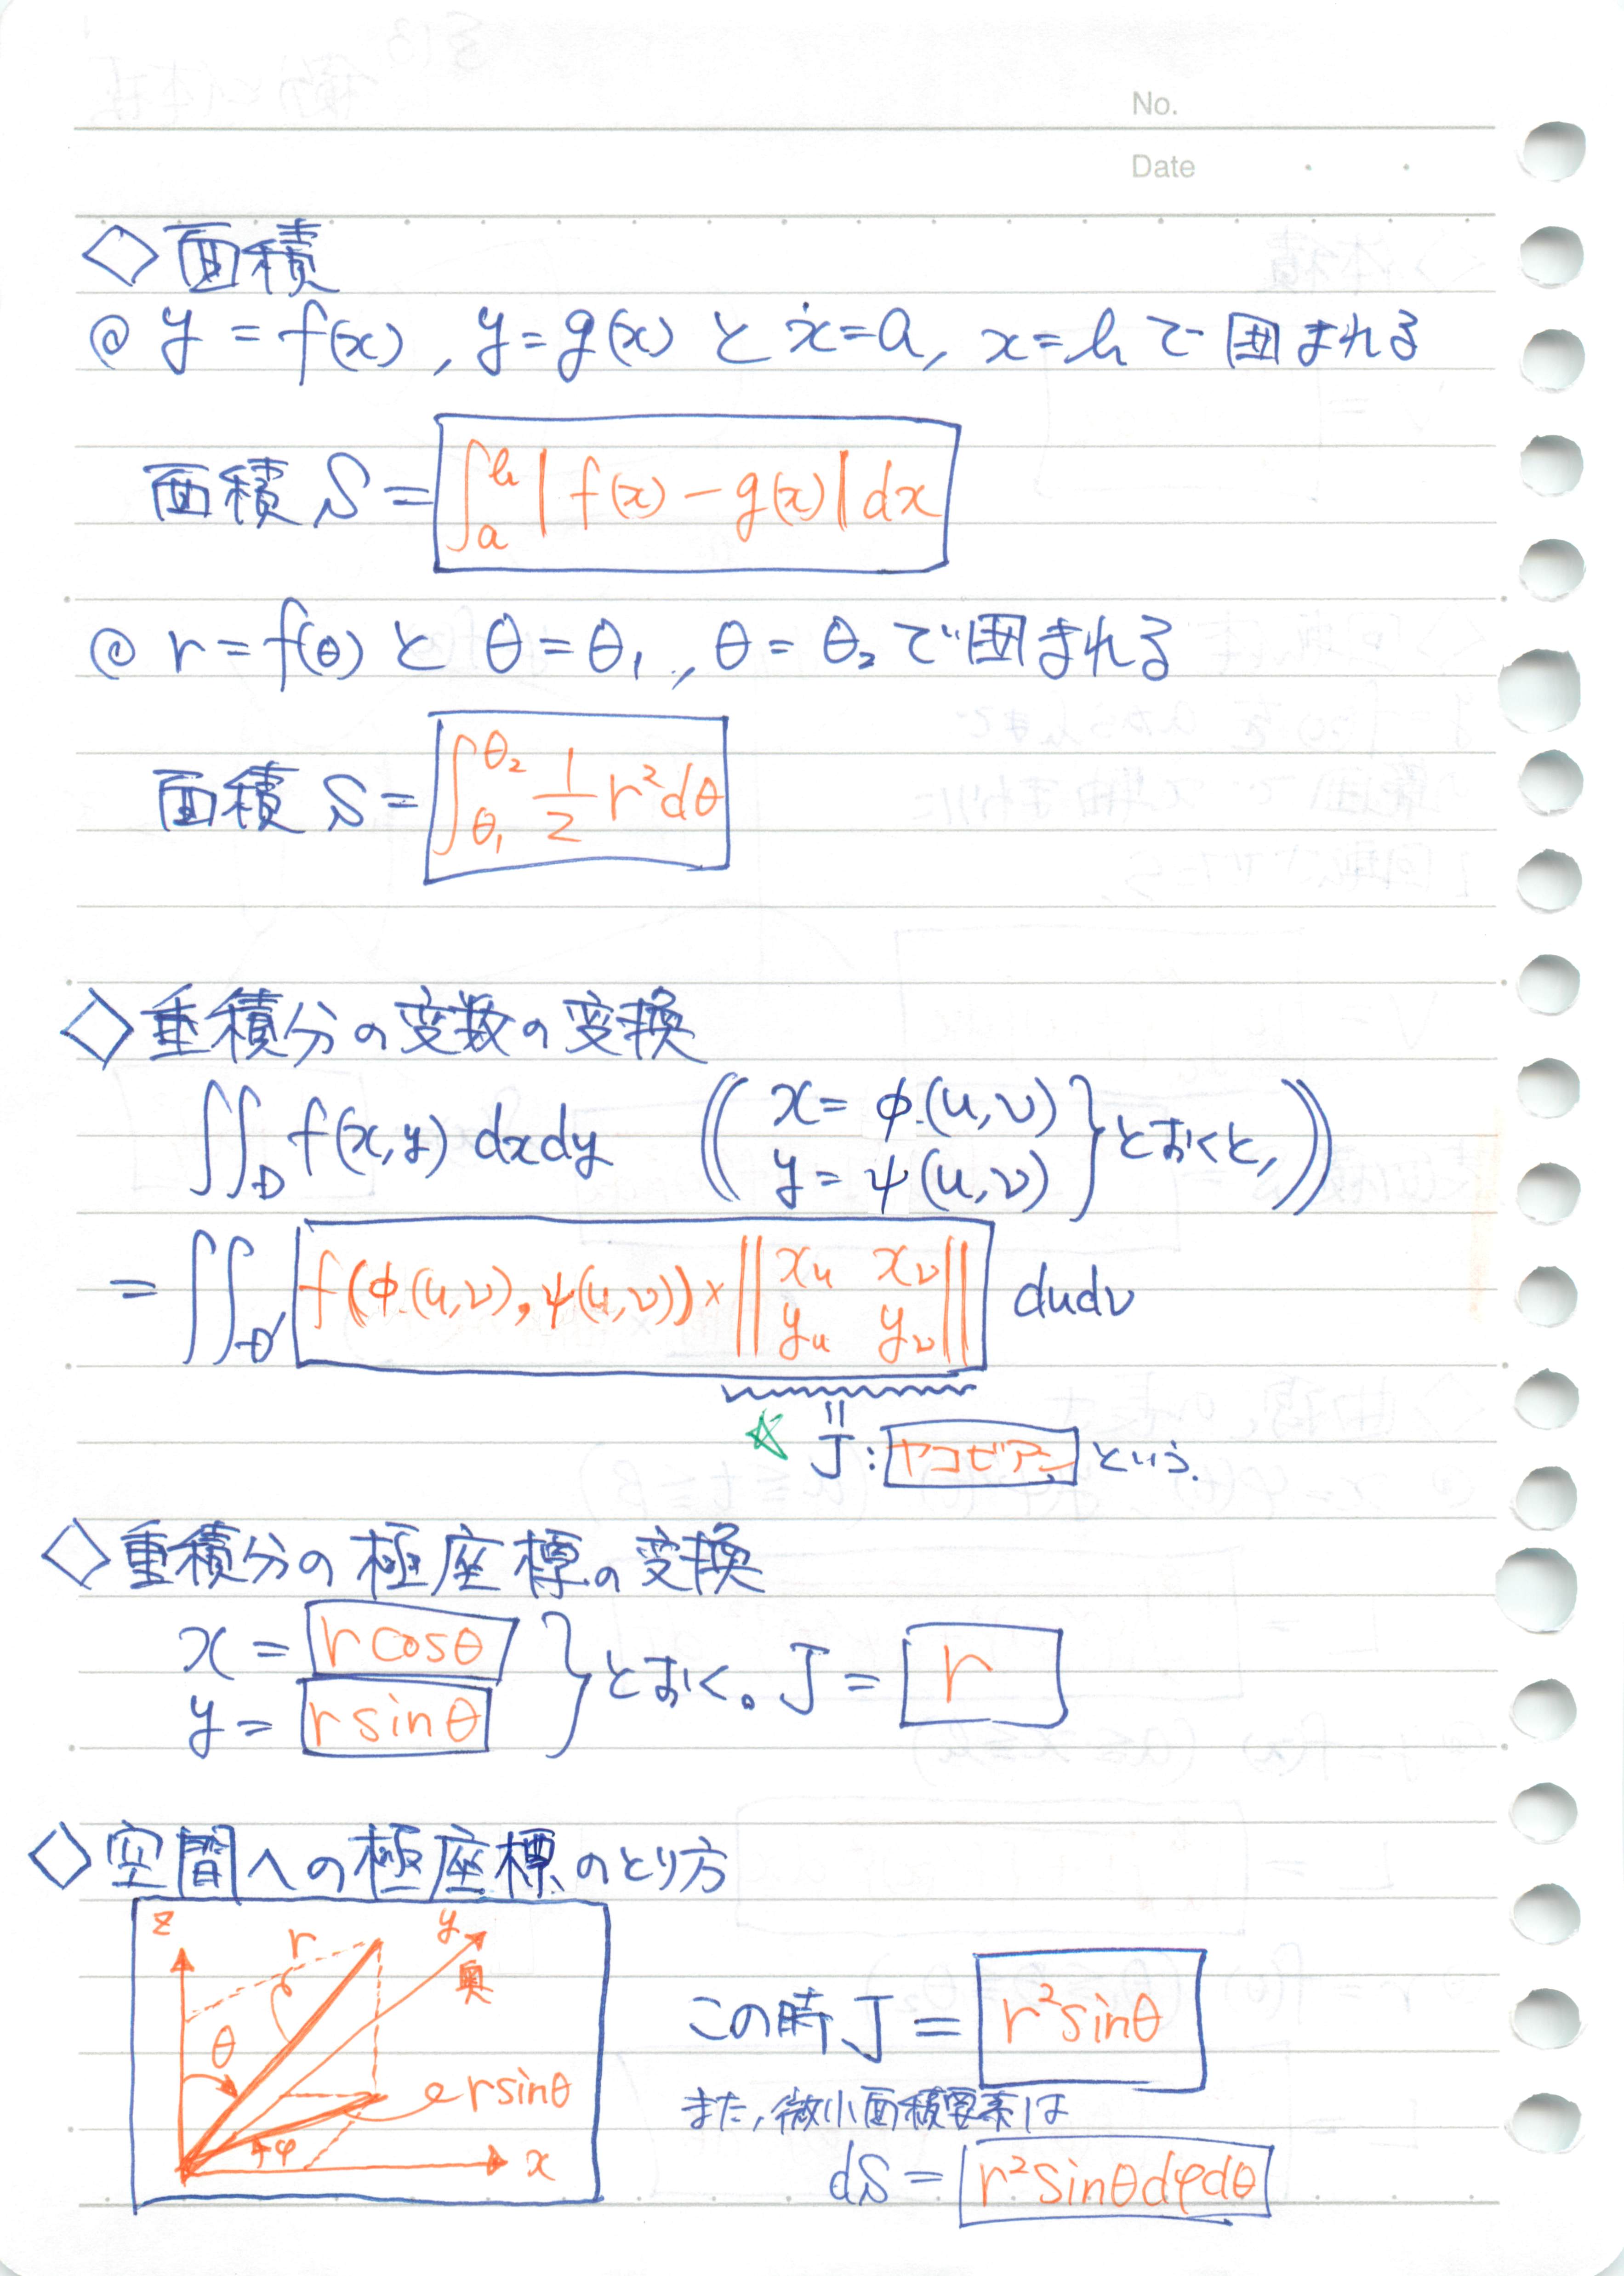 No.
Date
◇面積
@ y = f(x), y = g(x) と x = a, x = b で囲まれる
面積 S = ∫_a^b | f(x) - g(x) | dx
@ r = f(θ) と θ = θ₁, θ = θ₂ で囲まれる
面積 S = ∫_{θ₁}^{θ₂} 1/2 r² dθ
◇重積分の変数の変換
∬_D f(x,y) dxdy (( x = φ(u,v) y = ψ(u,v) } とおくと, ))
= ∬_{D'} f(φ(u,v), ψ(u,v)) × || x_u x_v y_u y_v || dudv
☆ ‖ J : ヤコビアン という.
◇重積分の極座標の変換
x = r cosθ
y = r sinθ } とおく。 J = r
◇空間への極座標のとり方
z r y
奥
θ
r sinθ
φ x
この時 J = r² sinθ
また, 微小面積要素は
dS = r² sinθ dφ dθ